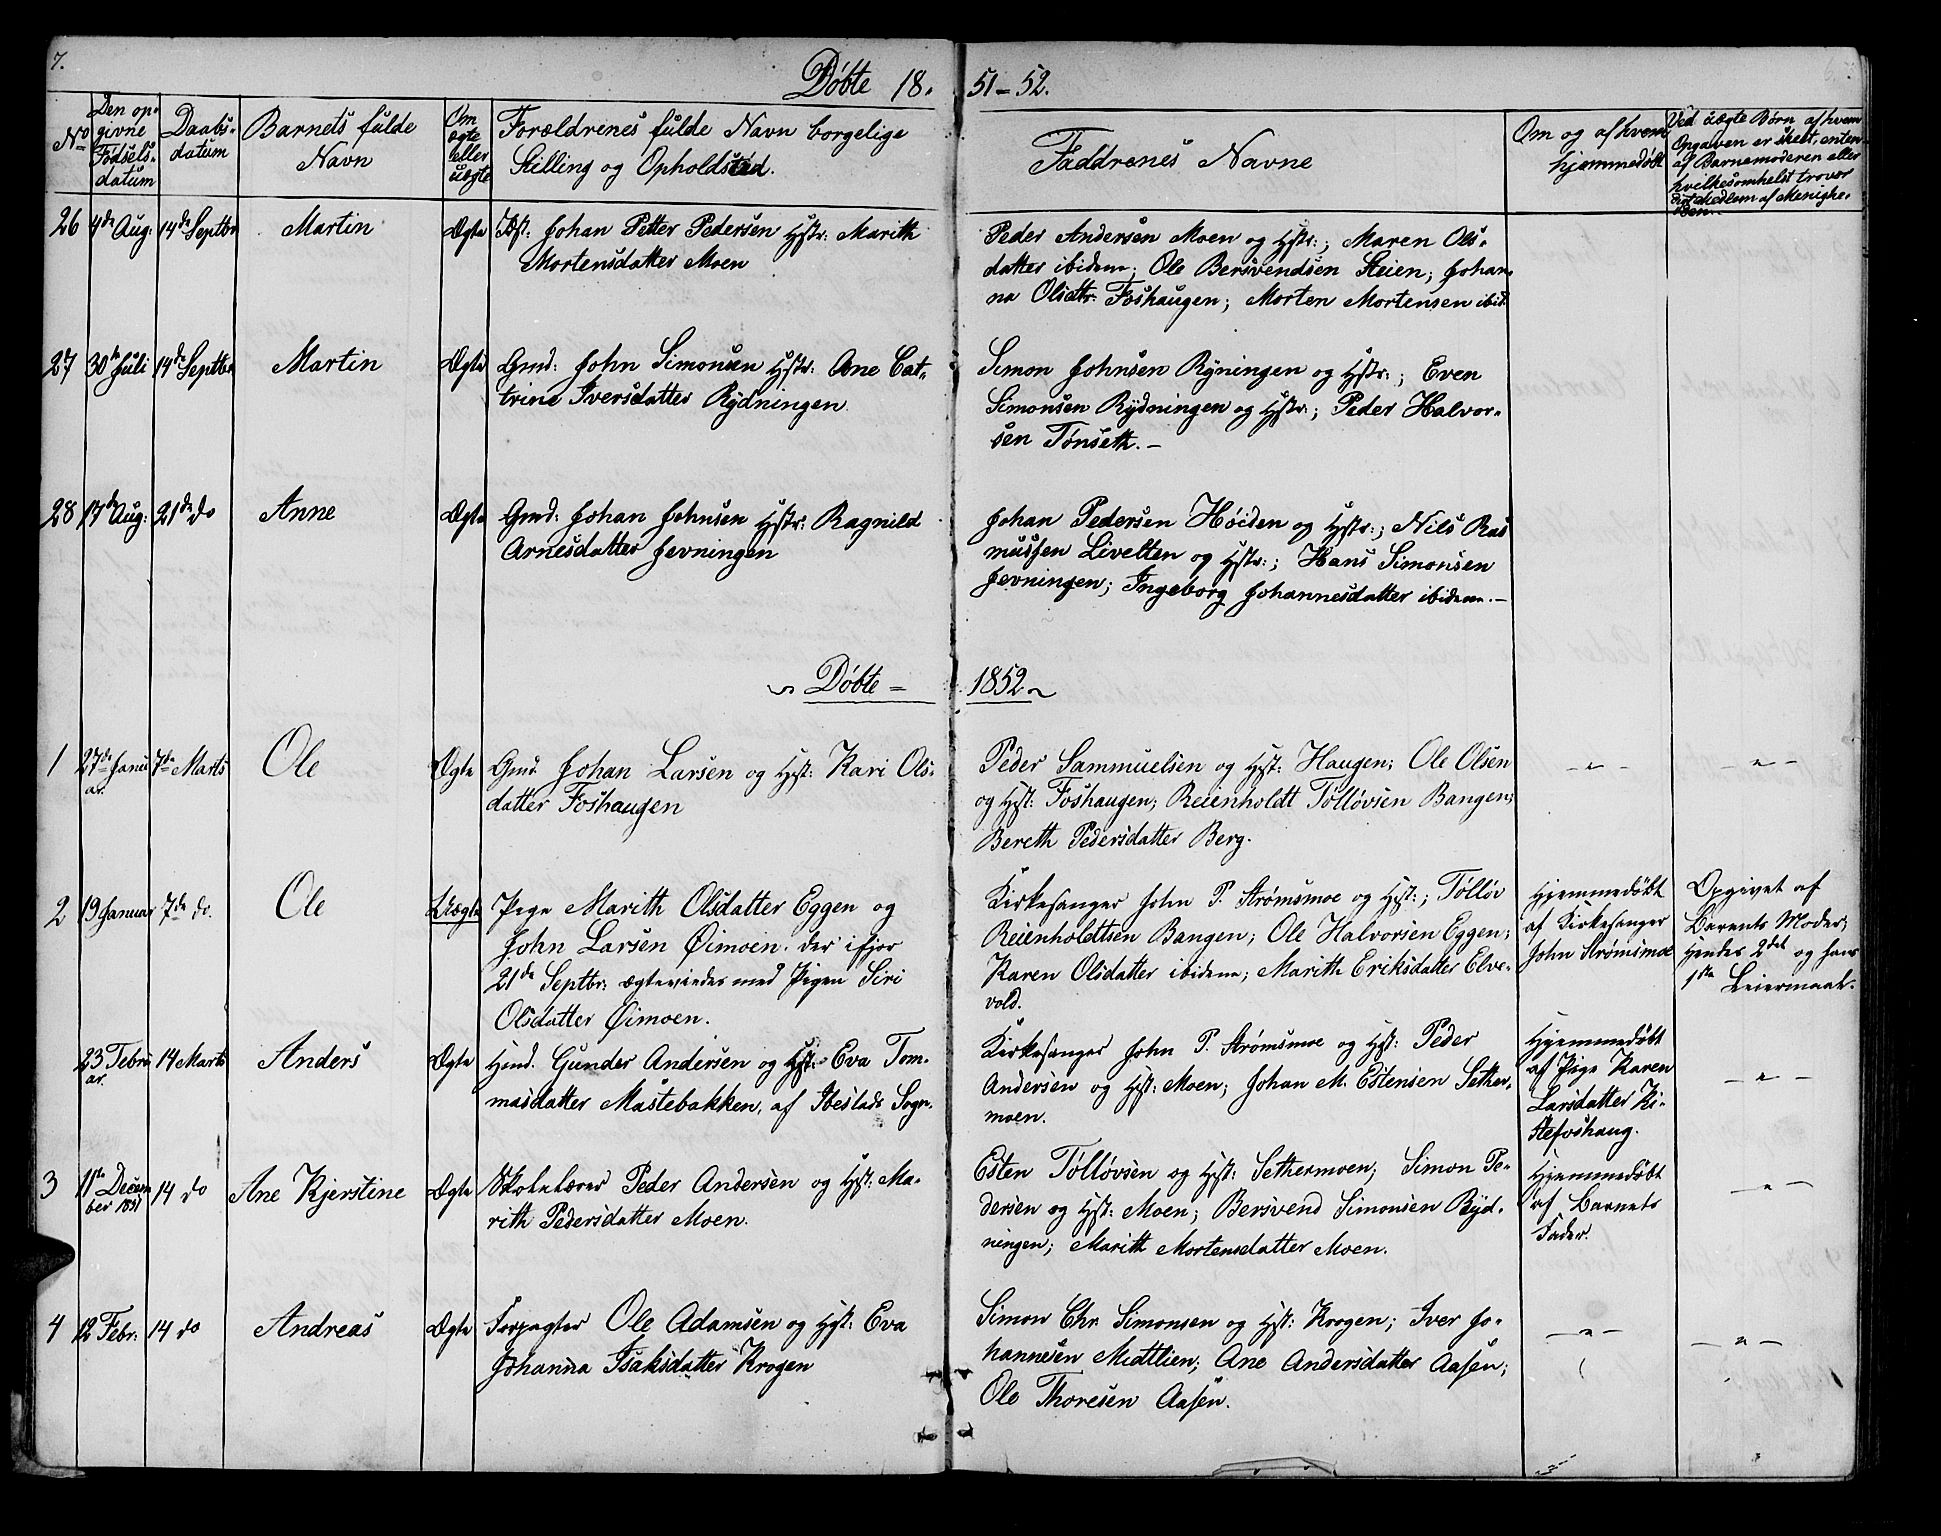 7.
Döbte 18. 51–52.
No
Den op-
givne
Födsels-
datum
Daabs-
datum
Barnets fulde
Navn
Om
ægte
eller
uægte
Forældrenes fulde Navn borgelige
Stilling og Opholdsted.
Faddrenes Navne
Om og af hvem
hjemmedöbt
Ved uægte Börn af hvem
Opgaven er skeet, enten
af Barnemoderen eller
hvilkesomhelst trovær
digt Medlem af Menighe-
den.
26 4de Aug: 14de Septbr Martin Ægte Johan Petter Pedersen Hstr: Marith
Mortensdatter Moen
Peder Andersen Moen og Hstr:; Maren Ols-
datter ibidem; Ole Bersvendsen Steien; Johan-
na Olsdtr. Foshaugen; Morten Mortensen ibid.
27 30te Juli 14de Septbr Martin Ægte Gmd: John Simonsen Hstr: Ane Cat-
trine Iversdatter Rydningen
Simon Johnsen Ryningen og Hstr:; Even
Simonsen Rydningen og Hstr:; Peder Halvor-
sen Tönseth.–
28 17de Aug: 21de do Anne Ægte Gmd: Johan Johnsen Hstr: Ragnild
Arnesdatter Jevningen
Johan Pedersen Höiden og Hstr:; Nils Ras
mussen Livelten og Hstr:; Hans Simonsen
Jevningen; Ingeborg Johannesdatter ibidem.–
Döbte = 1852
1 27de Janu
ar. 7de Marts Ole Ægte Gmd. Johan Larsen og Hst: Kari Ols-
datter Foshaugen
Peder Sammuelsen og Hst: Haugen; Ole Olsen
og Hst: Foshaugen; Reienholdt Töllövsen Bangen;
Bereth Pedersdatter Berg.
– " – – " –
2 19 Januar 7de do. Ole Uægte Pige Marith Olsdatter Eggen og
John Larsen Öimoen. der ifjor
21de Septbr. ægteviedes med Pigen Siri
Olsdatter Öimoen.
Kirkesanger John P. Strömsmoe og Hst:; Töllöv
Reienholdtsen Bangen; Ole Halvorsen Eggen;
Karen Olsdatter ibidem; Marith Eriksdatter Elve-
vold.
Hjemmedöbt
af Kirkesanger
John Strömsmoe
Opgivet af
Barnets Moder;
hendes 2det og hans
1ste Leiermaal.
23 Febru
ar. 14 Marts Anders Ægte Hmd. Gunder Andersen og Hst: Eva Tom-
masdatter Mastebakken, af Ibestads Sogn.
Kirkesanger John P. Strömsmoe og Hst: Peder
Andersen og Hst: Moen; Johan M. Estensen Sether-
moen.
Hjemmedöbt
af Pige Karen
Larsdatter Ki-
stefoshaug.
– " –
3 11te Decem
ber 1851 14 do Ane Kjerstine Ægte Skolelærer Peder Andersen og Hst: Ma-
rith Pedersdatter Moen.
Esten Töllövsen og Hst: Sethermoen; Simon Pe-
dersen og Hst: Moen; Bersvend Simonsen Ryd-
ningen; Marith Mortensdatter Moen.
Hjemmedöbt
af Barnets
Fader.
– " –
4 12 Febr: 14 do Andreas Ægte Forpagter Ole Adamsen og Hst: Eva
Johanna Isaksdatter Krogen
Simon Chr. Simonsen og Hst: Krogen; Iver Jo-
hannesen Midtlien; Ane Andersdatter Aasen;
Ole Thoresen Aasen.
– " – – " –